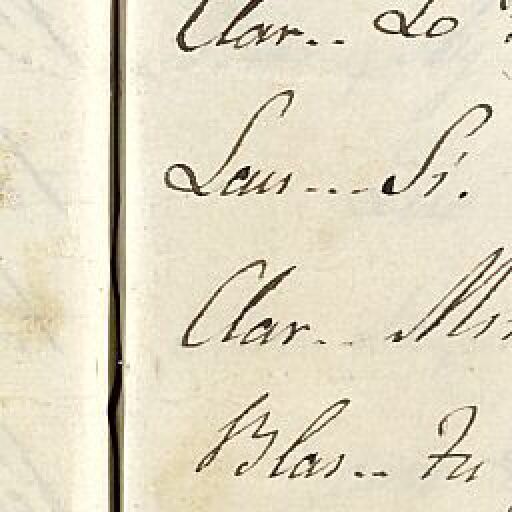 Clar.. Lo
Laus... Si.
Clar..
Blas.. Tu